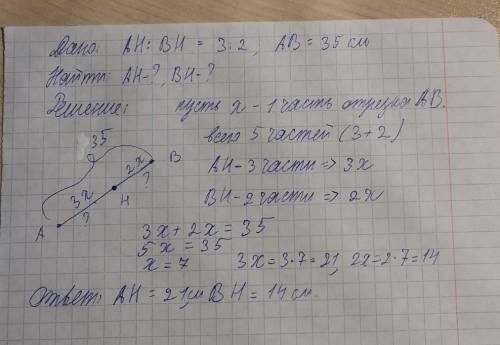 Дано: AH:BH = 3:2, AB = 35 см
Найти: AH-?, BH-?
Решение: пусть x - 1 часть отрезка AB.
всего 5 частей (3+2)
AH-3 части => 3x
BH-2 части => 2x
35
2x
B
?
3x
H
?
A
3x + 2x = 35
5x = 35
x = 7
3x = 3·7 = 21, 2x = 2·7 = 14
Ответ: AH = 21см, BH = 14 см.